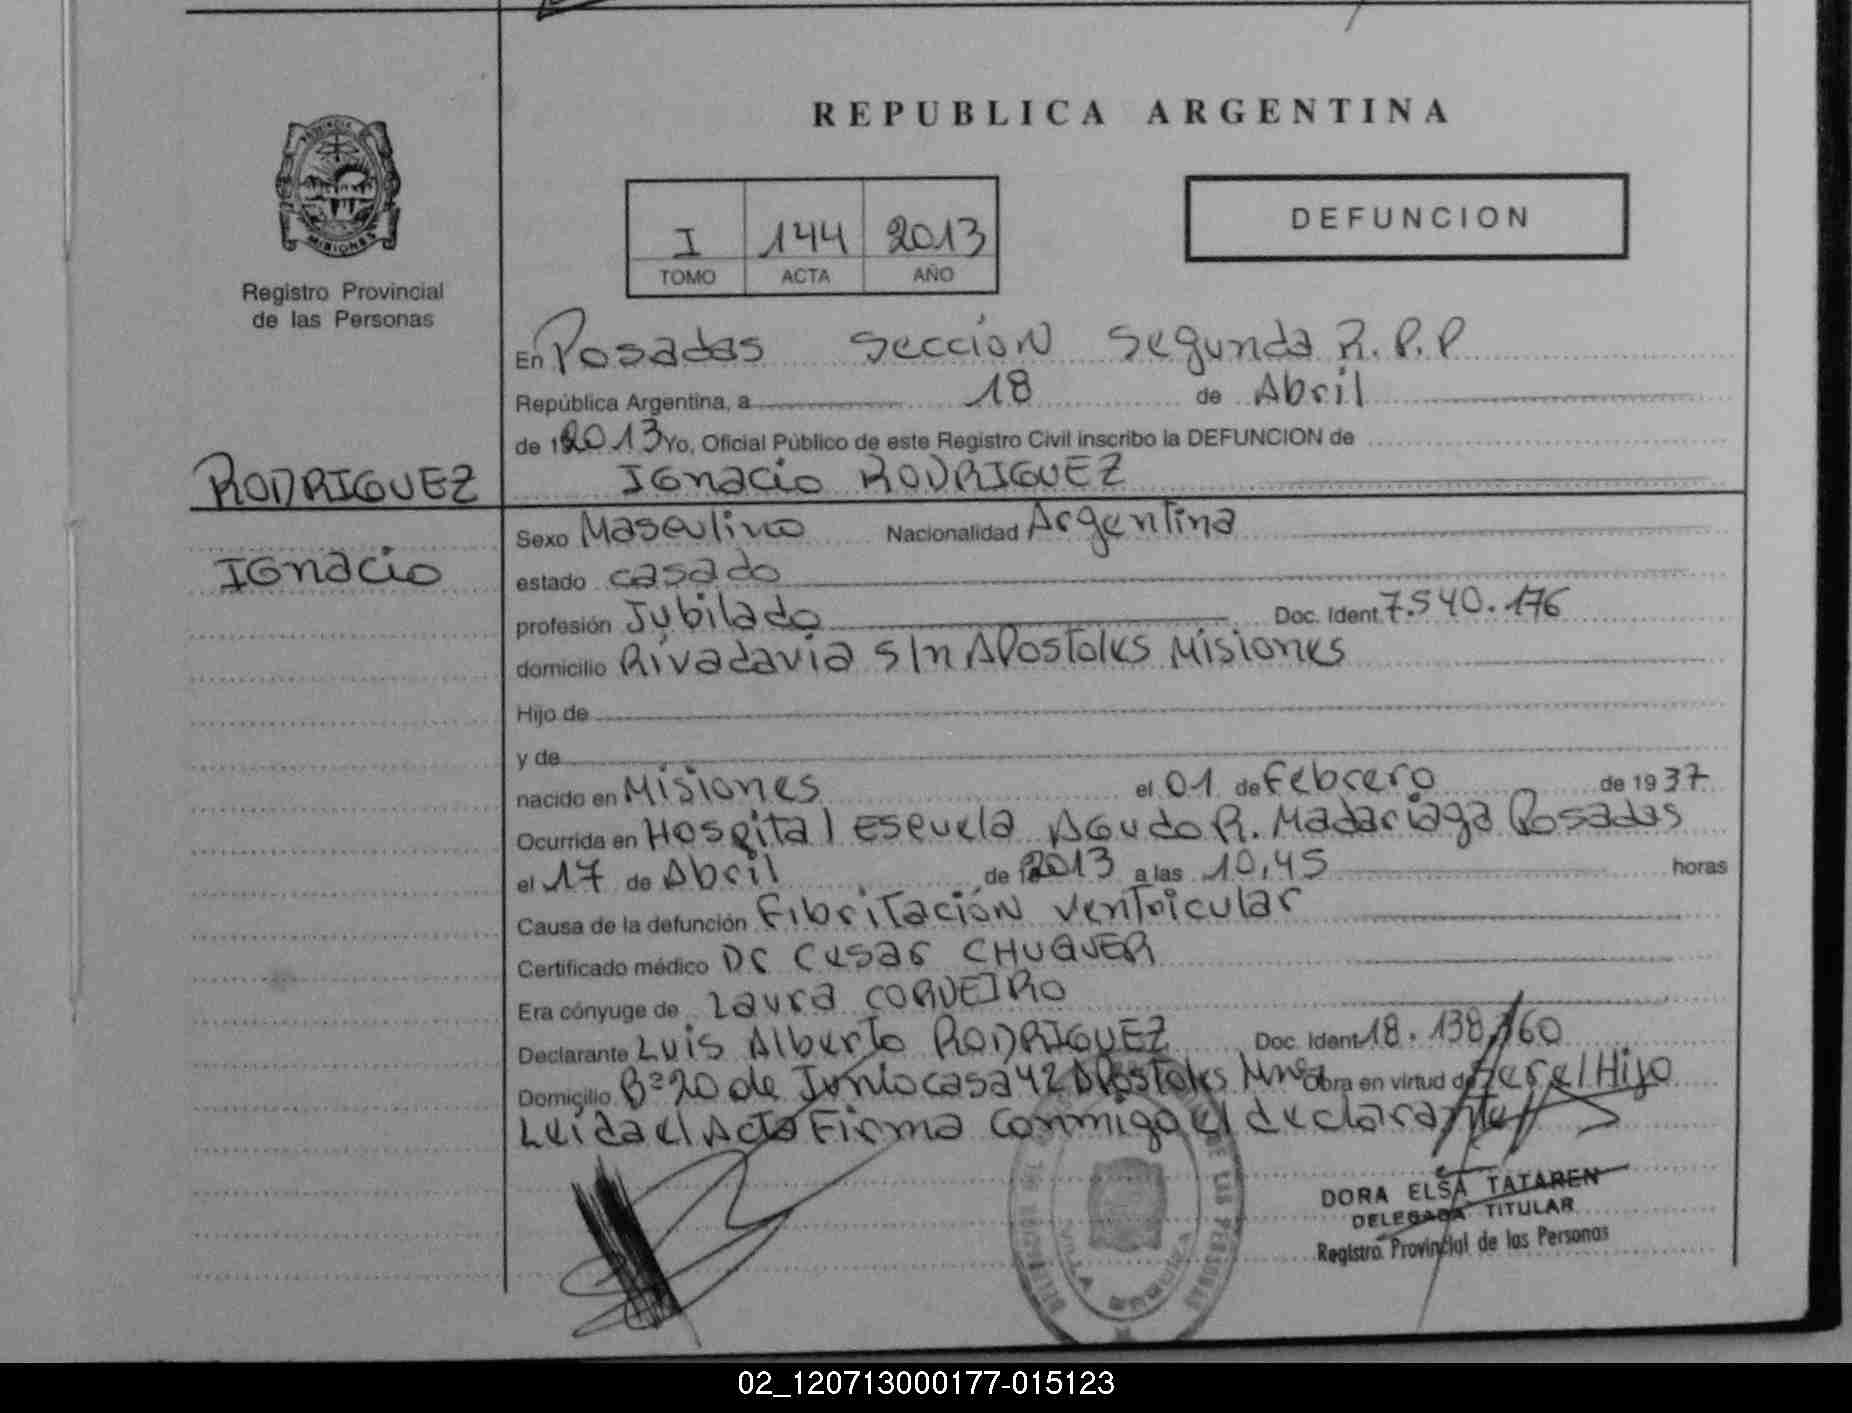 REPUBLICA ARGENTINA
PROVINCIA
MISIONES
Registro Provincial
de las Personas
I 144 2013
TOMO ACTA AÑO
DEFUNCION
En Posadas sección segunda R.P.P
República Argentina, a 18 de Abril
de 2013 Yo, Oficial Público de este Registro Civil inscribo la DEFUNCION de
RODRIGUEZ
Ignacio RODRIGUEZ
Ignacio
Sexo Masculino Nacionalidad Argentina
estado casado
profesión Jubilado Doc. Ident. 7.540.176
domicilio Rivadavia s/n Apostoles Misiones
Hijo de
y de
nacido en Misiones el 01 de Febrero de 1937
Ocurrida en Hospital Escuela Agudo R. Madariaga Posadas
el 17 de Abril de 2013 a las 10,45 horas
Causa de la defunción Fibrilación ventricular
Certificado médico Dr Cesar CHUQUER
Era cónyuge de Laura CORVEIRO
Declarante Luis Alberto RODRIGUEZ Doc. Ident 18.138.160
Domicilio Bº 20 de Junio casa 42 Apostoles Mnes Obra en virtud de ser el Hijo
Leida el Acta Firma conmigo el declarante
DE LAS PERSONAS
VILLA
DORA ELSA TATAREN
DELEGADA TITULAR
Registro Provincial de las Personas
02_120713000177-015123